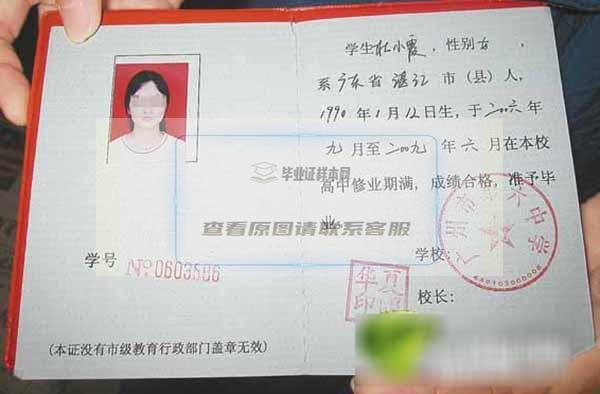 学生杜小霞，性别女，
系广东省湛江市（县）人，
1990年1月12日生，于二〇〇六年
九月至二〇〇九年六月在本校
高中修业期满，成绩合格，准予毕
业
毕业证样本网
查看原图请联系客服
学号 No 0603586
学校：
校长：
(本证没有市级教育行政部门盖章无效)